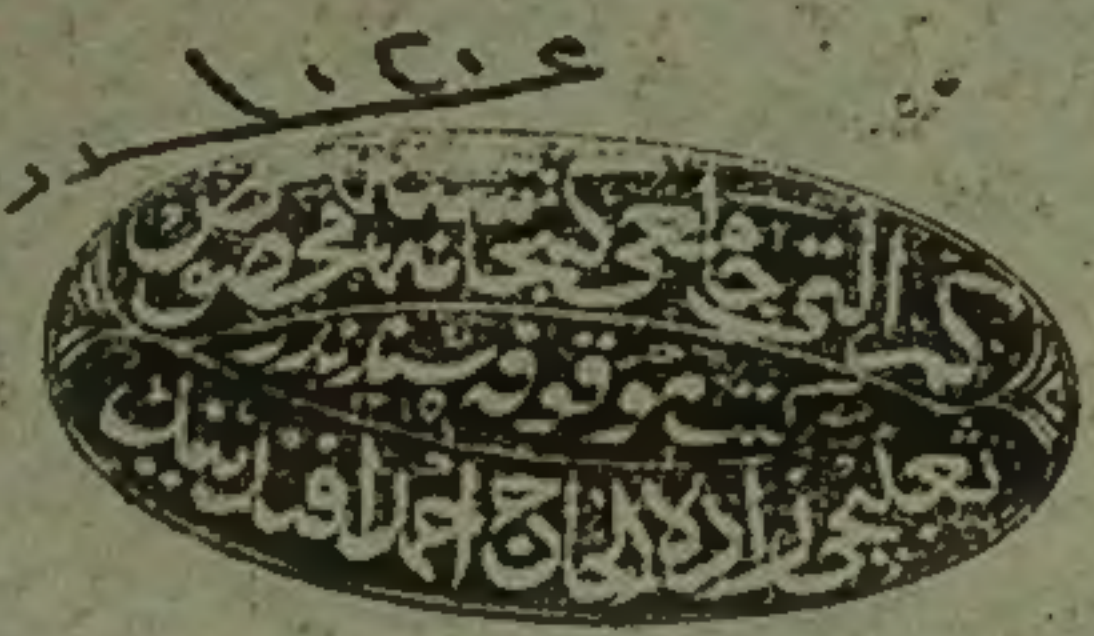 ١٠٢٠٤
كمر التى جامعى كتبخانه سنه مخصوص
موقوفه سندندر
ثعلبجى زاده الحاج احمد افندينك